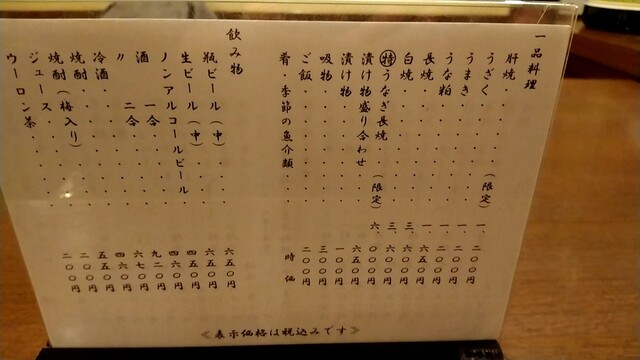 一品料理
肝焼・・・・・・・
うざく・・・・(限定)
うまき・・・・・・・
うな粕・・・・・・・
長焼・・・・・・・
白焼・・・・・・・
㊕うなぎ長焼・(限定) 六、〇〇〇円
漬け物盛り合わせ・・ 六五〇円
漬け物・・・・・・
吸物・・・・・・・ 三〇〇円
ご飯・・・・・・・ 二〇〇円
肴・季節の魚介類・・ 時価
飲み物
瓶ビール(中)・・・ 六五〇円
生ビール(中)・・・ 六五〇円
ノンアルコールビール・ 四五〇円
酒 一合・・・・ 四六〇円
〃 二合・・・・ 九二〇円
冷酒・・・・・・ 六七〇円
焼酎・・・・・・ 四六〇円
焼酎(梅入り)・・・ 五五〇円
ジュース・・・・・ 二〇〇円
ウーロン茶・・・・ 二〇〇円
≪表示価格は税込みです≫